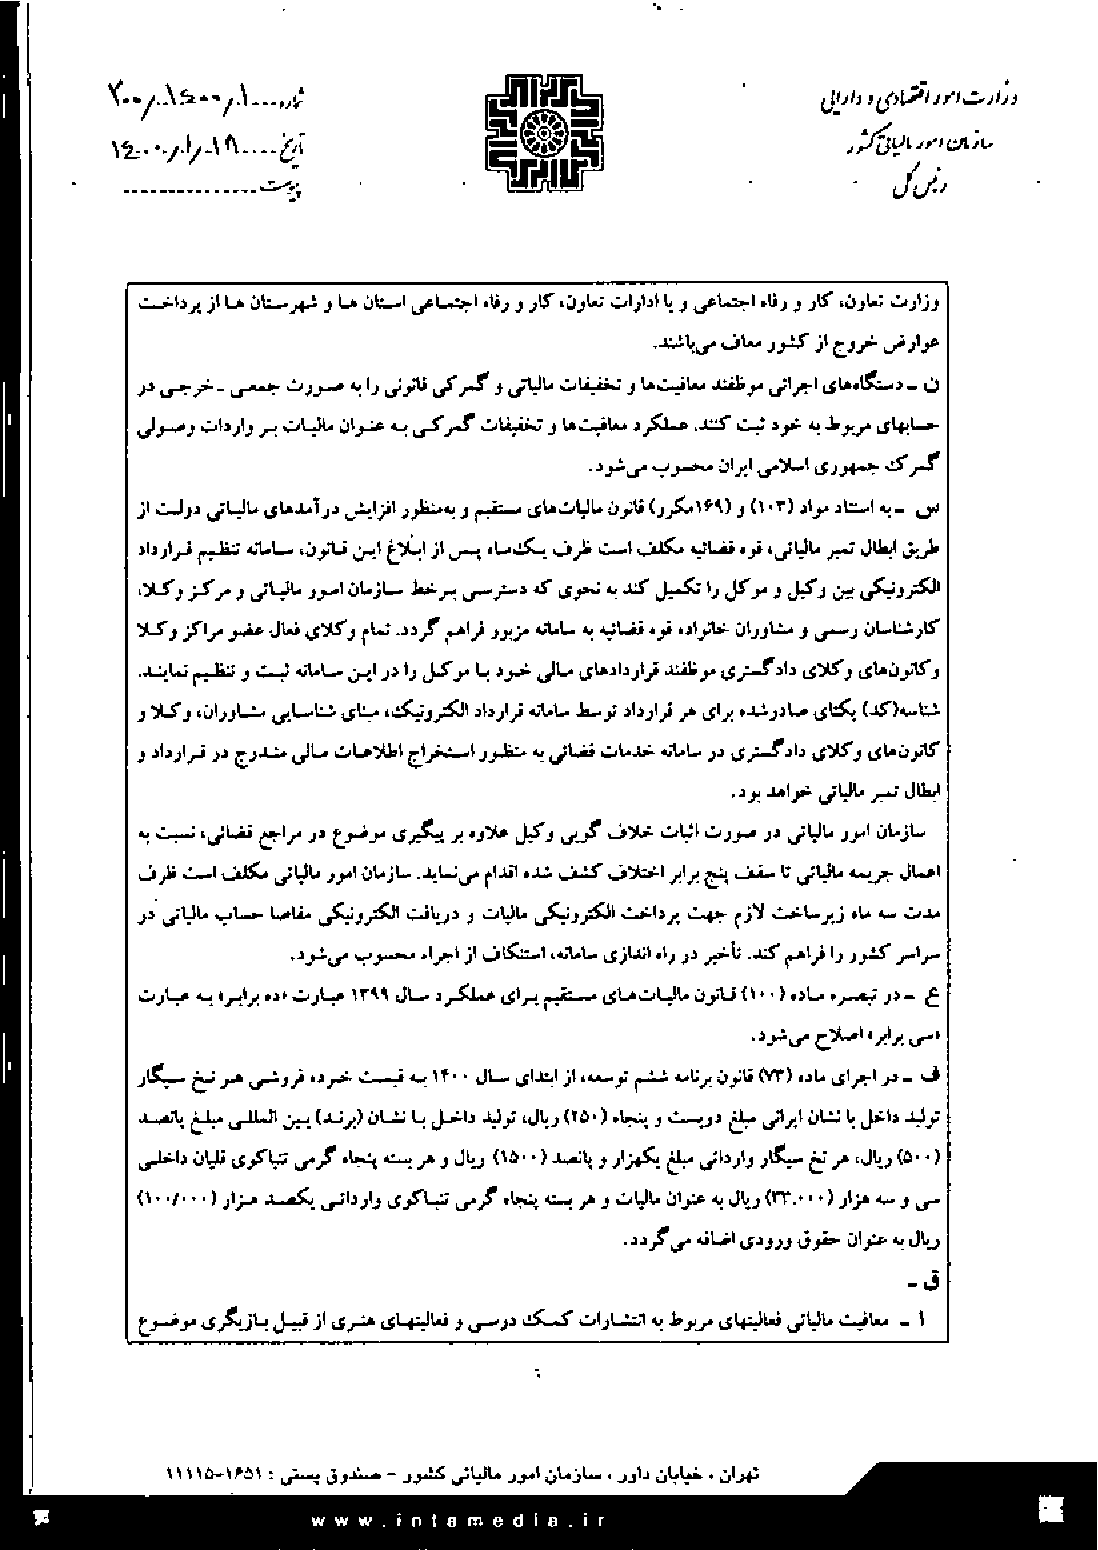 وزارت امور اقتصادی و دارایی
سازمان امور مالیاتی کشور
رئیس کل
شماره: ۲۰۰/۱۴۰۰/۱
تاریخ: ۱۴۰۰/۰۱/۱۸
پیوست
وزارت تعاون، کار و رفاه اجتماعی و یا ادارات تعاون، کار و رفاه اجتماعی استان ها و شهرستان ها از پرداخت
عوارض خروج از کشور معاف می‌باشند.
ن - دستگاه‌های اجرائی موظفند معافیت‌ها و تخفیفات مالیاتی و گمرکی قانونی را به صورت جمعی - خرجی در
حسابهای مربوط به خود ثبت کنند. عملکرد معافیت‌ها و تخفیفات گمرکی به عنوان مالیات بر واردات وصولی
گمرک جمهوری اسلامی ایران محسوب می‌شود.
س - به استناد مواد (۱۰۳) و (۱۶۹مکرر) قانون مالیات‌های مستقیم و به‌منظور افزایش درآمدهای مالیاتی دولت از
طریق ابطال تمبر مالیاتی، قوه قضائیه مکلف است ظرف یک‌ماه پس از ابلاغ این قانون، سامانه تنظیم قرارداد
الکترونیکی بین وکیل و موکل را تکمیل کند به نحوی که دسترسی برخط سازمان امور مالیاتی و مرکز وکلا،
کارشناسان رسمی و مشاوران خانواده قوه قضائیه به سامانه مزبور فراهم گردد. تمام وکلای فعال عضو مراکز وکلا
وکانون‌های وکلای دادگستری موظفند قراردادهای مالی خود با موکل را در این سامانه ثبت و تنظیم نمایند.
شناسه(کد) یکتای صادرشده برای هر قرارداد توسط سامانه قرارداد الکترونیک، مبنای شناسایی مشاوران، وکلا و
کانون‌های وکلای دادگستری در سامانه خدمات قضائی به منظور استخراج اطلاعات مالی مندرج در قرارداد و
ابطال تمبر مالیاتی خواهد بود.
سازمان امور مالیاتی در صورت اثبات خلاف گویی وکیل علاوه بر پیگیری موضوع در مراجع قضائی، نسبت به
اعمال جریمه مالیاتی تا سقف پنج برابر اختلاف کشف شده اقدام می‌نماید. سازمان امور مالیاتی مکلف است ظرف
مدت سه ماه زیرساخت لازم جهت پرداخت الکترونیکی مالیات و دریافت الکترونیکی مفاصا حساب مالیاتی در
سراسر کشور را فراهم کند. تأخیر در راه اندازی سامانه، استنکاف از اجراء محسوب می‌شود.
ع - در تبصره ماده (۱۰۰) قانون مالیات‌های مستقیم برای عملکرد سال ۱۳۹۹ عبارت «ده برابر» به عبارت
«سی برابر» اصلاح می‌شود.
ف - در اجرای ماده (۷۳) قانون برنامه ششم توسعه، از ابتدای سال ۱۴۰۰ به قیمت خرده فروشی هر نخ سیگار
تولید داخل با نشان ایرانی مبلغ دویست و پنجاه (۲۵۰) ریال، تولید داخل با نشان (برند) بین المللی مبلغ پانصد
(۵۰۰) ریال، هر نخ سیگار وارداتی مبلغ یکهزار و پانصد (۱۵۰۰) ریال و هر بسته پنجاه گرمی تنباکوی قلیان داخلی
سی و سه هزار (۳۳.۰۰۰) ریال به عنوان مالیات و هر بسته پنجاه گرمی تنباکوی وارداتی یکصد هزار (۱۰۰/۰۰۰)
ریال به عنوان حقوق ورودی اضافه می‌گردد.
ق -
۱ - معافیت مالیاتی فعالیتهای مربوط به انتشارات کمک درسی و فعالیتهای هنری از قبیل بازیگری موضوع
تهران ، خیابان داور ، سازمان امور مالیاتی کشور - صندوق پستی : ۱۶۵۱-۱۱۱۱۵
www.intamedia.ir